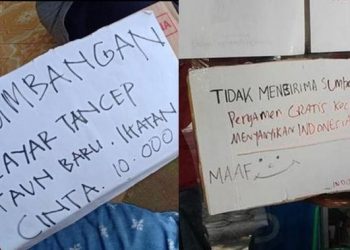 UMBANGAN
LAYAR TANCEP
TAUN BARU. IKATAN
CINTA. 10.000
TIDAK MENERIMA SUMBA
Pengamen GRATIS KEC
MENYANYIKAN INDONESIA
MAAF
INDO